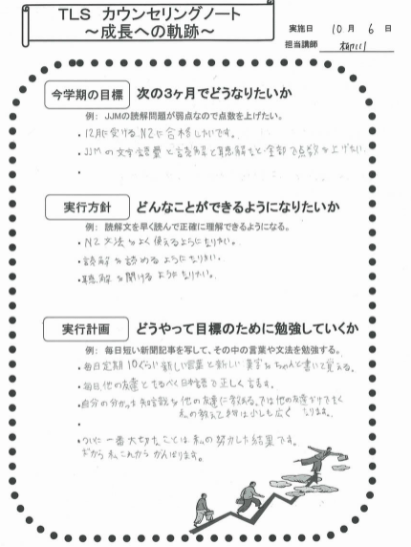 TLS カウンセリングノート
～成長への軌跡～
実施日 10月 6日
担当講師 柳川
今学期の目標 次の3ヶ月でどうなりたいか
例: JJMの読解問題が弱点なので点数を上げたい。
・12月に受ける N2に合格したいです。
・JJMの文字語彙と読解と聴解など全部で点数を上げたい
・
実行方針 どんなことができるようになりたいか
例: 読解文を早く読んで正確に理解できるようになる。
・N2文法をよく使えるようになりたい。
・読解を読めるようになりたい。
・聴解を聞けるようになりたい。
実行計画 どうやって目標のために勉強していくか
例: 毎日短い新聞記事を写して、その中の言葉や文法を勉強する。
・毎日定期10ぐらい新しい言葉と新しい漢字をちゃんと書いて覚える。
・毎日他の友達となるべく日本語で正しく言える。
・自分の分かった知識を他の友達に教える。では他の友達だけでなく
私の教えて は少しも広くなります。
・
・ついに一番大切なことは私の努力した結果です。
だから私これからがんばります。